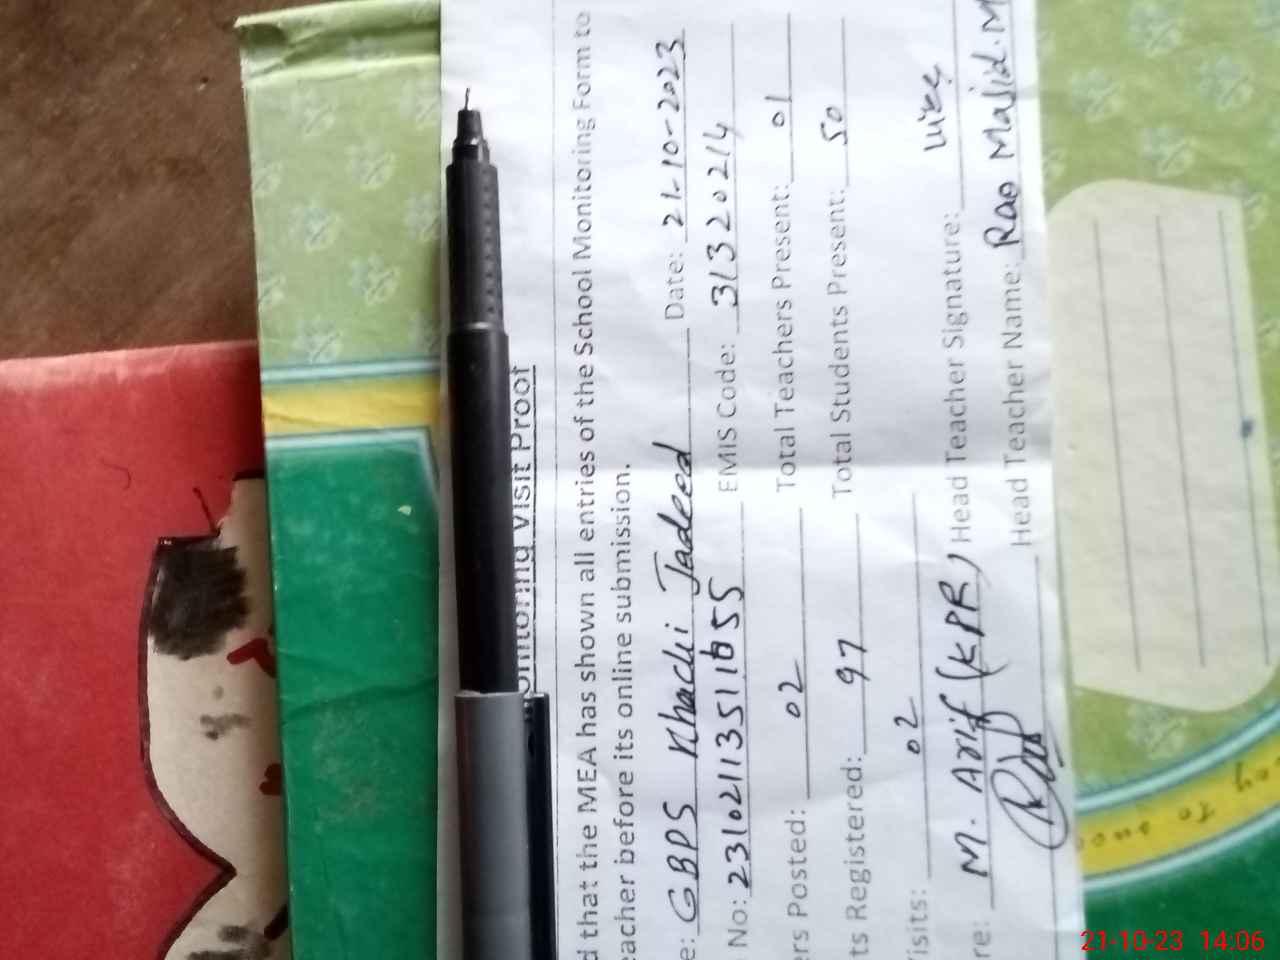 onitoring Visit Proof
d that the MEA has shown all entries of the School Monitoring Form to
eacher before its online submission.
e: GBPS Khachi Jadeed Date: 21-10-2023
No: EMIS Code: 31320214
ers Posted: 02 Total Teachers Present: 01
ts Registered: 97 Total Students Present: 50
Visits: 02
M. Arif (KPR) Head Teacher Signature:
re: Head Teacher Name: Rao Majid. M
21-10-23 14:06